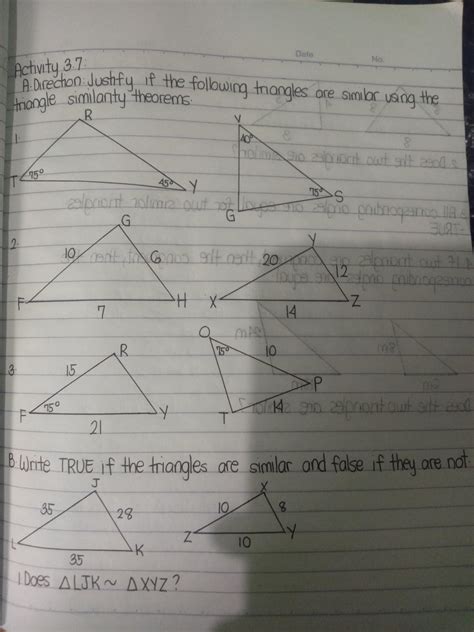 Date No.
Activity 3.7:
A. Direction: Justify if the following triangles are similar using the
triangle similarity theorems.
1.
R
T 75° 45° Y
V
40°
75° S
G
2.
G
10 6
F 7 H
Y
20 12
X 14 Z
3.
R
15
F 75° Y
21
O
75° 10
P
T 14
B. Write TRUE if the triangles are similar and false if they are not.
J
35 28
L K
35
X
10 8
Z Y
10
1. Does △LJK ~ △XYZ?